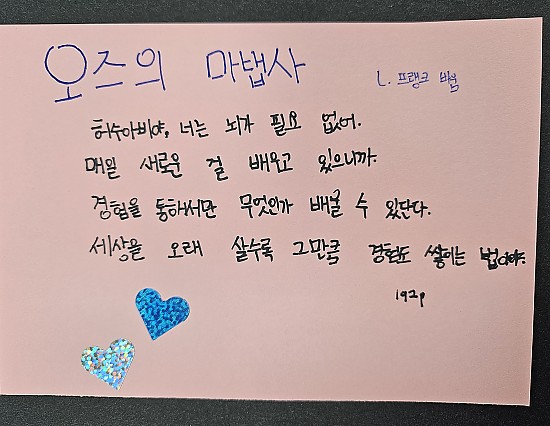 오즈의 마탭사
L. 프랭크 바움
허수아비야, 너는 뇌가 필요 없어.
매일 새로운 걸 배우고 있으니까.
경험을 통해서만 무엇인가 배울 수 있단다.
세상을 오래 살수록 그만큼 경험도 쌓이는 법이야.
192p